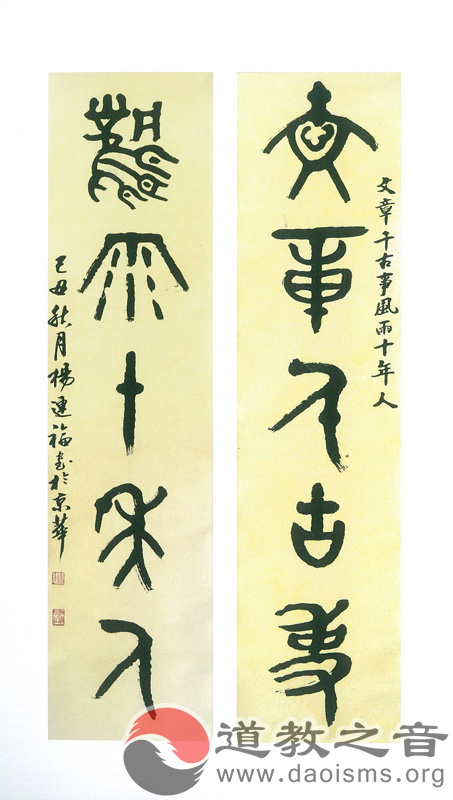 文章千古事
文章千古事風雨十年人
風雨十年人
己丑秋月楊連福書於京華
道教之音
www.daoisms.org